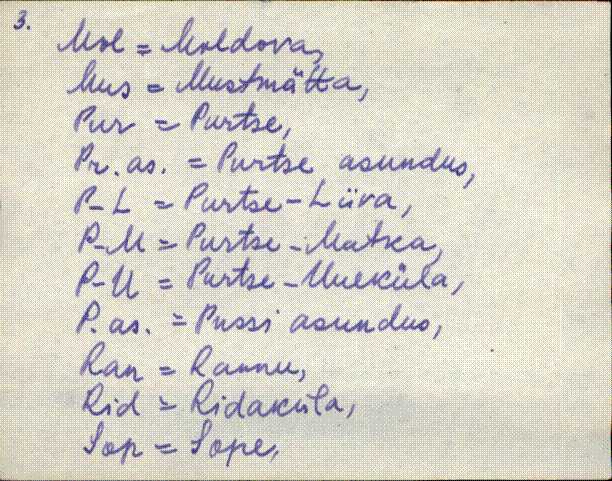 3.
Mol = Moldova,
Mus = Mustmätta,
Pur = Purtse,
Pr. as. = Purtse asundus,
P-L = Purtse-Liiva,
P-M = Purtse-Matka,
P-U = Purtse-Uueküla,
P. as. = Püssi asundus,
Ran = Rannu,
Rid = Ridaküla,
Sop = Sope,